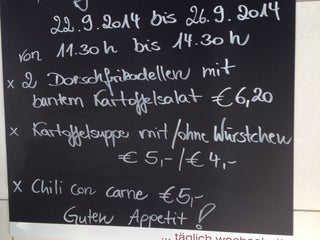 22.9.2014 bis 26.9.2014
von 11.30h bis 14.30h
x 2 Dorschfrikadellen mit
buntem Kartoffelsalat €6,20
x Kartoffelsuppe mit/ohne Würstchen
€5,-/€4,-
x Chili con carne €5,-
Guten Appetit!
... täglich